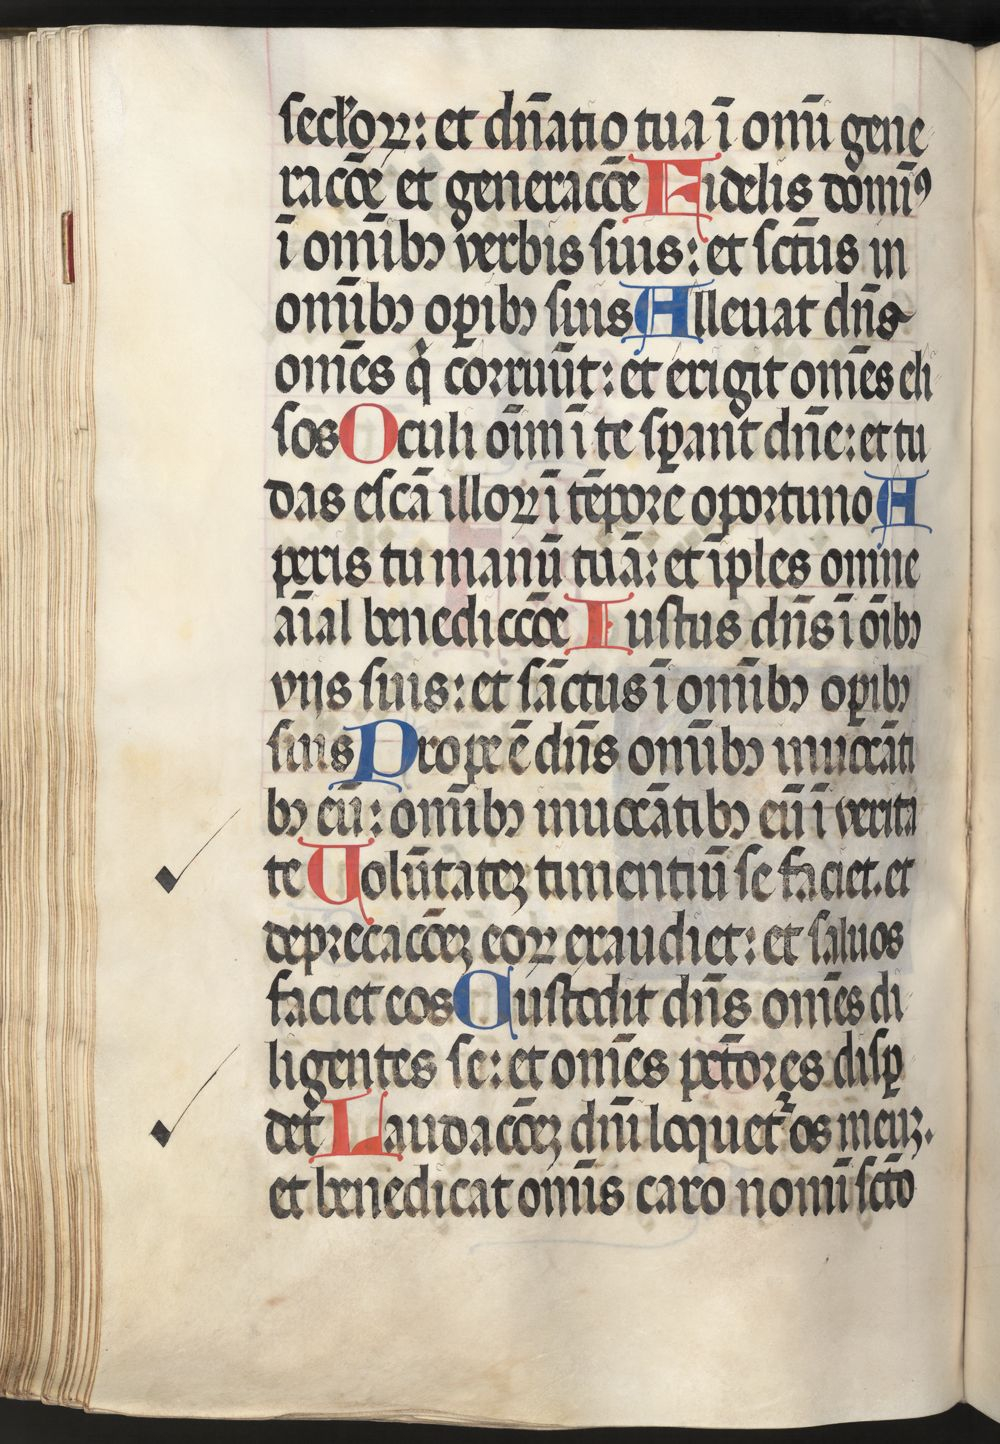 seclꝛoꝝ: et dn̄atio tua ī omī gene
racōe et generacōe Fidelis domī⁹
ī om̄ibꝫ verbis suis: et sct̄us in
om̄ibꝫ oꝑibꝫ suis Alleuat dn̄s
om̄es q̇ corruūt: et erigit om̄es eli
sos Oculi oīm ī te sꝑant dn̄e: et tu
das escā illoꝝ ī tēpore oportuno A
peris tu manū tuā: et īples omne
aīal benediccōe Iustus dn̄s ī oībꝫ
viis suis: et sāctus ī om̄ibꝫ oꝑibꝫ
suis Prope ē dn̄s om̄ibꝫ inuocāti
bꝫ eū: om̄ibꝫ inuocātibꝫ eū ī verita
te Uolūtateꝫ timentiū se faciet. et
deprecacōeꝫ eoꝝ exaudiet: et saluos
faciet eos Custodit dn̄s om̄es di
ligentes se: et om̄es pctōres disꝑ
det Laudacōeꝫ dn̄i loquet᷑ os meuꝫ.
et benedicat om̄is caro nomī sctō